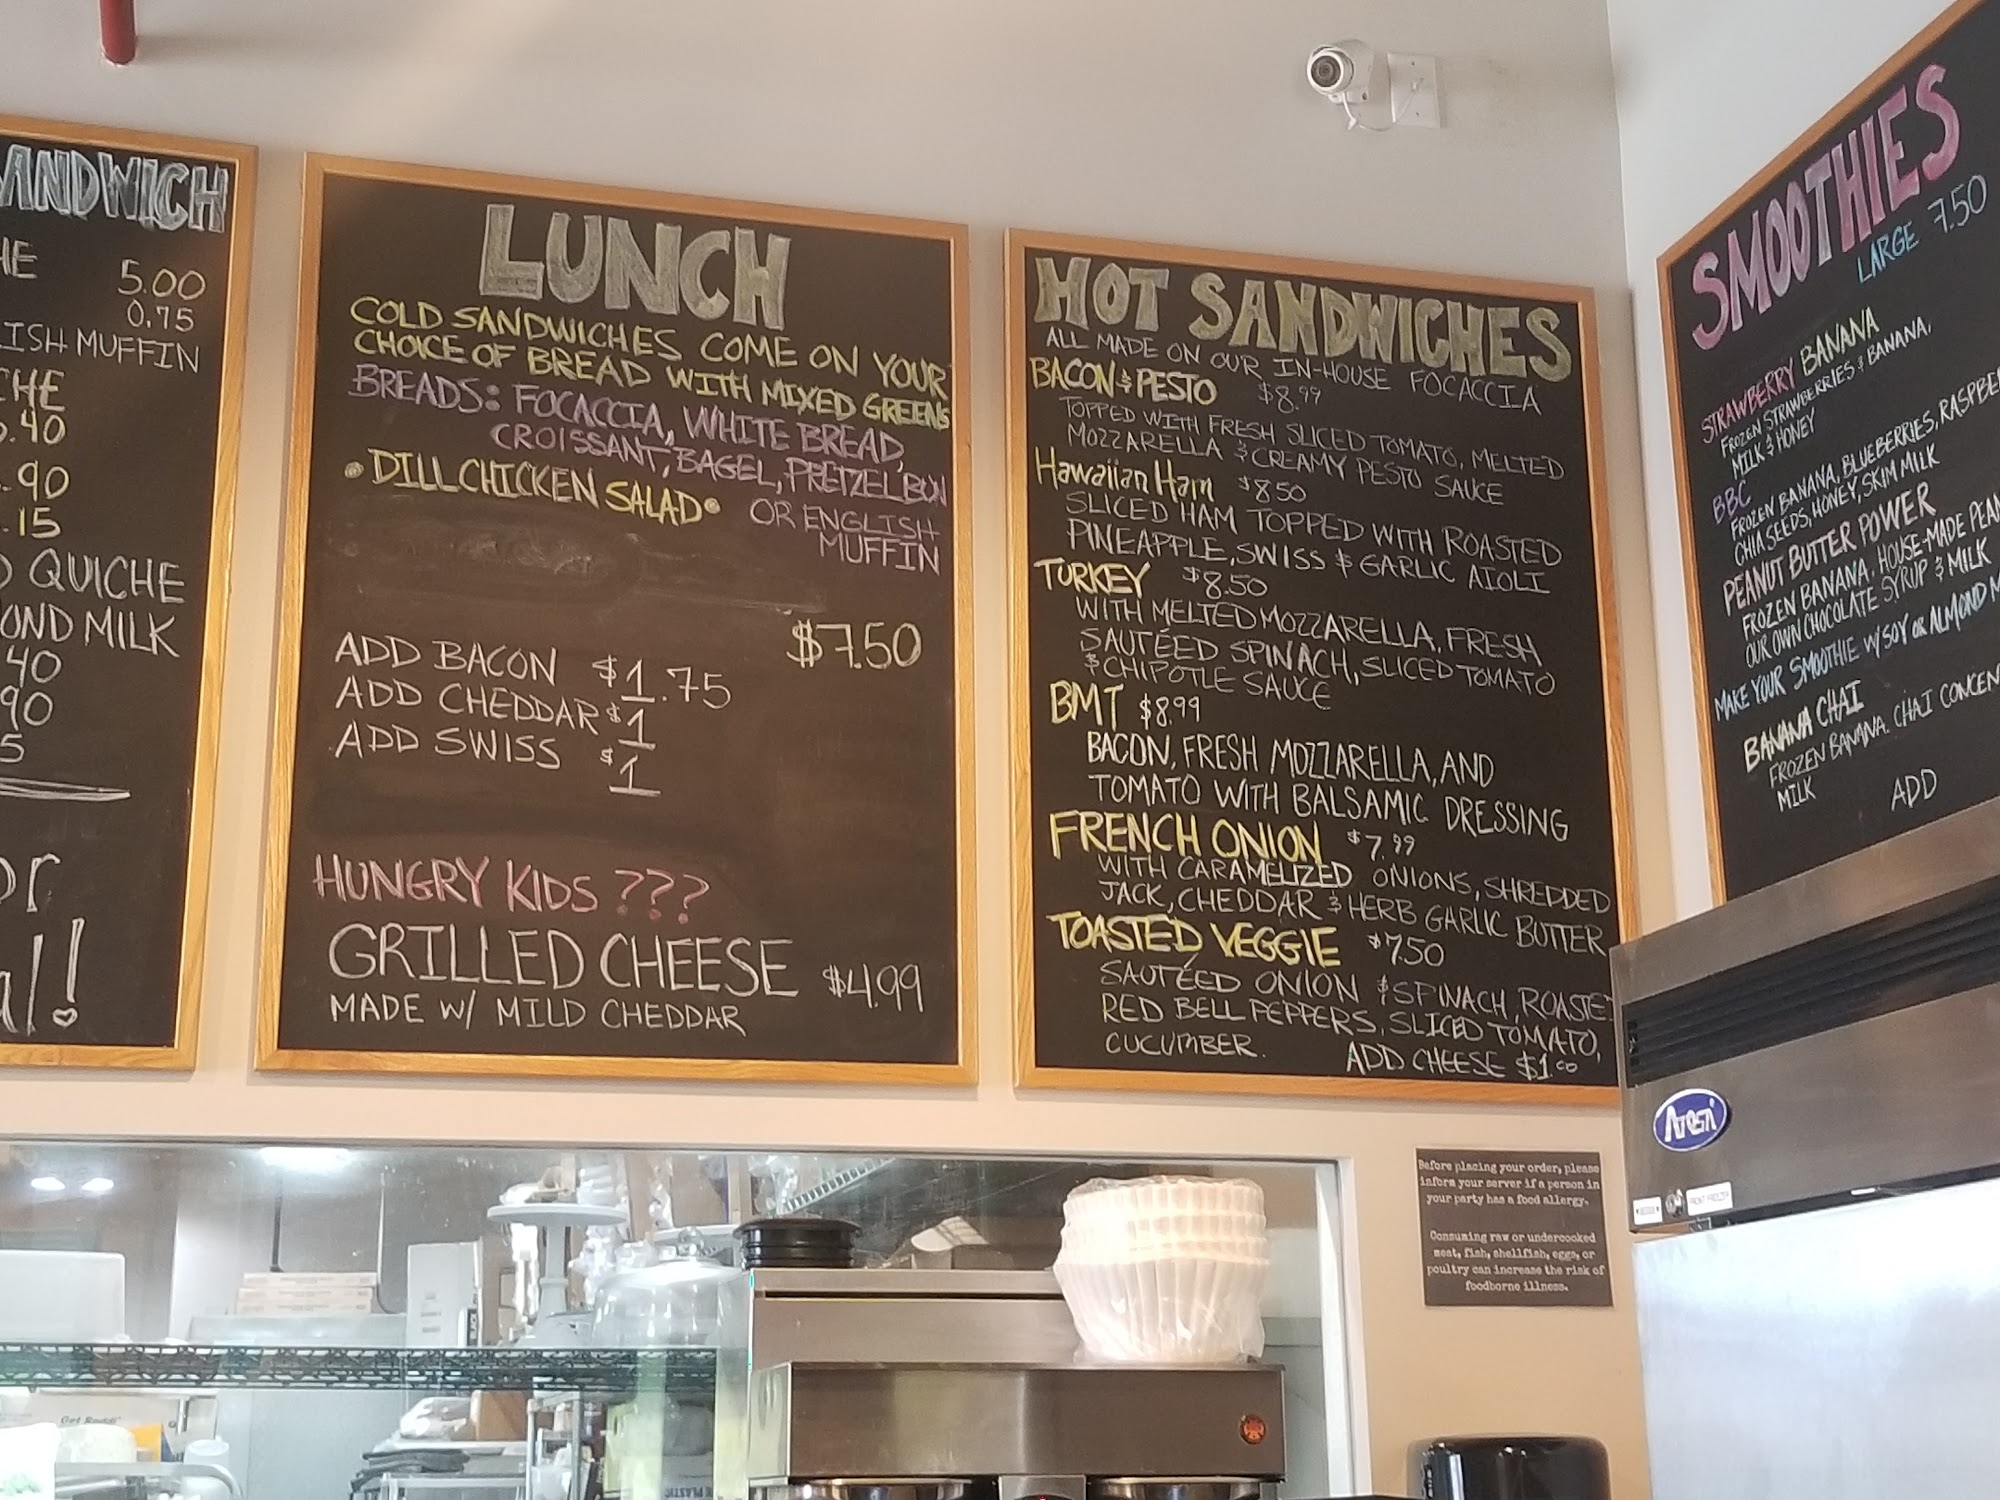 ANDWICH
HE
5.00
0.75
ISH MUFFIN
CHE
.40
.90
.15
QUICHE
OND MILK
40
90
5
or
al!
LUNCH
COLD SANDWICHES COME ON YOUR
CHOICE OF BREAD WITH MIXED GREENS
BREADS: FOCACCIA, WHITE BREAD,
CROISSANT, BAGEL, PRETZEL BUN
• DILL CHICKEN SALAD •
OR ENGLISH
MUFFIN
$7.50
ADD BACON $1.75
ADD CHEDDAR $1
ADD SWISS $1
HUNGRY KIDS ???
GRILLED CHEESE $4.99
MADE W/ MILD CHEDDAR
HOT SANDWICHES
ALL MADE ON OUR IN-HOUSE FOCACCIA
BACON & PESTO $8.99
TOPPED WITH FRESH SLICED TOMATO, MELTED
MOZZARELLA & CREAMY PESTO SAUCE
Hawaiian Ham $8.50
SLICED HAM TOPPED WITH ROASTED
PINEAPPLE, SWISS & GARLIC AIOLI
TURKEY $8.50
WITH MELTED MOZZARELLA, FRESH
SAUTÉED SPINACH, SLICED TOMATO
& CHIPOTLE SAUCE
BMT $8.99
BACON, FRESH MOZZARELLA, AND
TOMATO WITH BALSAMIC DRESSING
FRENCH ONION $7.99
WITH CARAMELIZED ONIONS, SHREDDED
JACK, CHEDDAR & HERB GARLIC BUTTER
TOASTED VEGGIE $7.50
SAUTÉED ONION & SPINACH, ROASTE
RED BELL PEPPERS, SLICED TOMATO,
CUCUMBER.
ADD CHEESE $1.00
SMOOTHIES
LARGE 7.50
STRAWBERRY BANANA
FROZEN STRAWBERRIES & BANANA,
MILK & HONEY
BBC
FROZEN BANANA, BLUEBERRIES, RASPBE
CHIA SEEDS, HONEY, SKIM MILK
PEANUT BUTTER POWER
FROZEN BANANA, HOUSE-MADE PEAN
OUR OWN CHOCOLATE SYRUP & MILK
MAKE YOUR SMOOTHIE W/ SOY OR ALMOND M
BANANA CHAI
FROZEN BANANA. CHAI CONCEN
MILK
ADD
Atosa
Before placing your order, please
inform your server if a person in
your party has a food allergy.
Consuming raw or undercooked
meat, fish, shellfish, eggs, or
poultry can increase the risk of
foodborne illness.